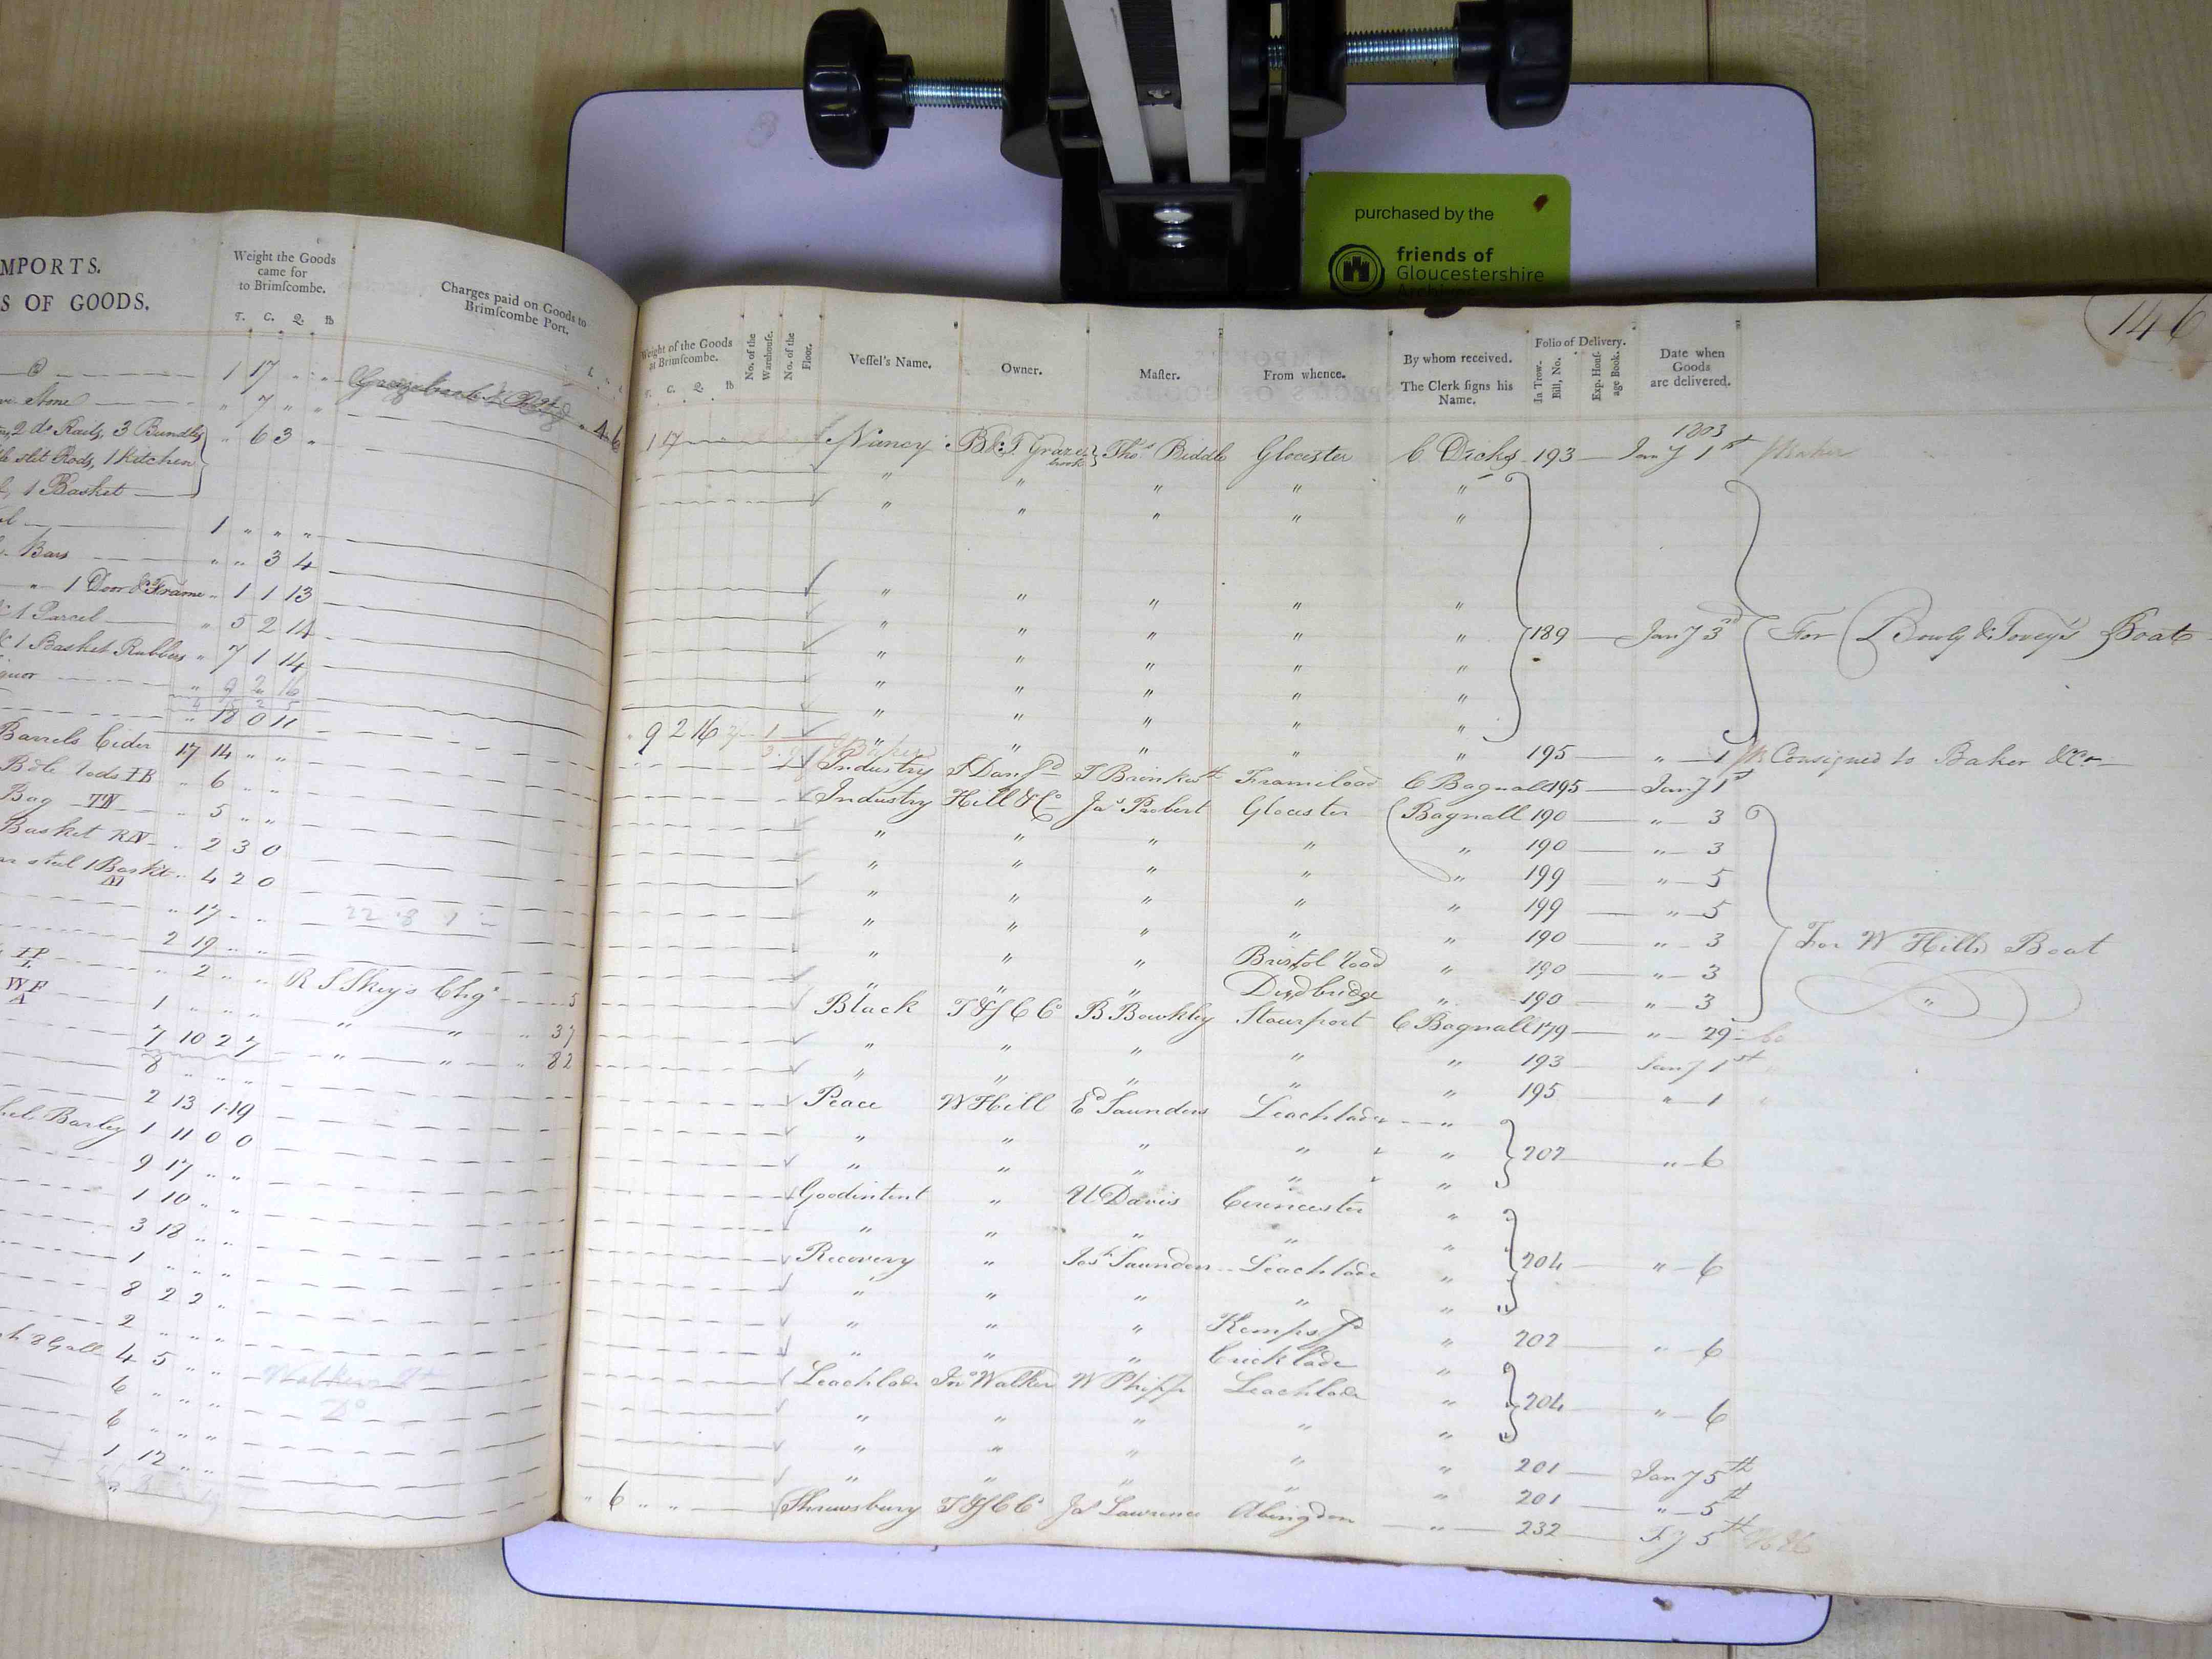 purchased by the
friends of
Gloucestershire
146
MPORTS.
S OF GOODS.
Weight the Goods
came for
to Brimſcombe.
T. C. Q. lb
Charges paid on Goods to
Brimſcombe Port.
1 17 " "
Stone " 7 " "
2 do Rails, 3 Bundles " 6 3 "
slit Rods, 1 Kitchen
1 Basket
1 " " "
Bars " " 3 4
" 1 Door & Frame " 1 1 13
1 Parcel " 5 2 14
&c 1 Basket Rubbers " 7 1 14
" 9 2 16
" 18 0 11
Barrels Cider 17 14 " "
Bdle Rods IB " 6 " "
Bag TW " 5 " "
Basket RN " 2 3 0
steel 1 Baskt " 4 2 0
" 17 " "
2 19 " "
IP " 2 " " R S Skey's Chgs 5
WF
A 1 " " " " " " 37
7 10 2 7 " " " 82
8 " " "
2 13 1 19
Barley 1 11 0 0
9 17 " "
1 10 " "
3 18 " "
1 " " "
8 2 2 "
2 " " "
8 Gall 4 5 " "
6 " " " Do
6 " " "
1 12 " "
Weight of the Goods
at Brimſcombe.
T. C. Q. lb
No. of the
Warehouſe.
No. of the
Floor.
Veſſel's Name.
Owner.
Maſter.
From whence.
By whom received.
The Clerk ſigns his
Name.
Folio of Delivery.
In Trow.
Bill, No.
Exp. Houſ-
age Book.
Date when
Goods
are delivered.
1803
1 17 Nancy B & T Graze Thos Biddle Glocester C Dicks 193 Jany 1st Baker
brook
" " " " "
" " " " "
" " " " "
" " " " " 189 Jany 3rd For Bowly & Tovey's Boat
" " " " "
" " " " "
" " " " "
9 2 16 " " " " " 195 " 1 Consigned to Baker &Co
Industry Framiload C Bagnall 195 Jany 1st
Industry Hill & Co Jas Probert Glocester Bagnall 190 " 3
" " " " " 190 " 3
" " " " " 199 " 5
" " " " " 199 " 5
" " " " " 190 " 3 For W Hills Boat
" " " Bristol Road " 190 " 3
" " " Dudbridge " 190 " 3
Black T&SCCo B Bowkley Stourport C Bagnall 179 " 29
" " " " " 193 Jany 1st
" " " " " 195 " 1
Peace W Hill Ed Saunders Leachlade "
" " " " " 202 " 6
" " " " "
Goodintent " W Davis Cirencester "
" " " " "
Recovery " Jos Saunders Leachlade " 204 " 6
" " " " "
" " " Kempsfd " 202 " 6
" " " Cricklade "
Leachlade Jno Walker W Phipps Leachlade " 204 " 6
" " " " "
" " " " " 201 Jany 5th
" " " " " 201 " 5th
" 6 " " Shrewsbury T&SCCo Jas Lawrence Abingdon " 232 Fy 5th